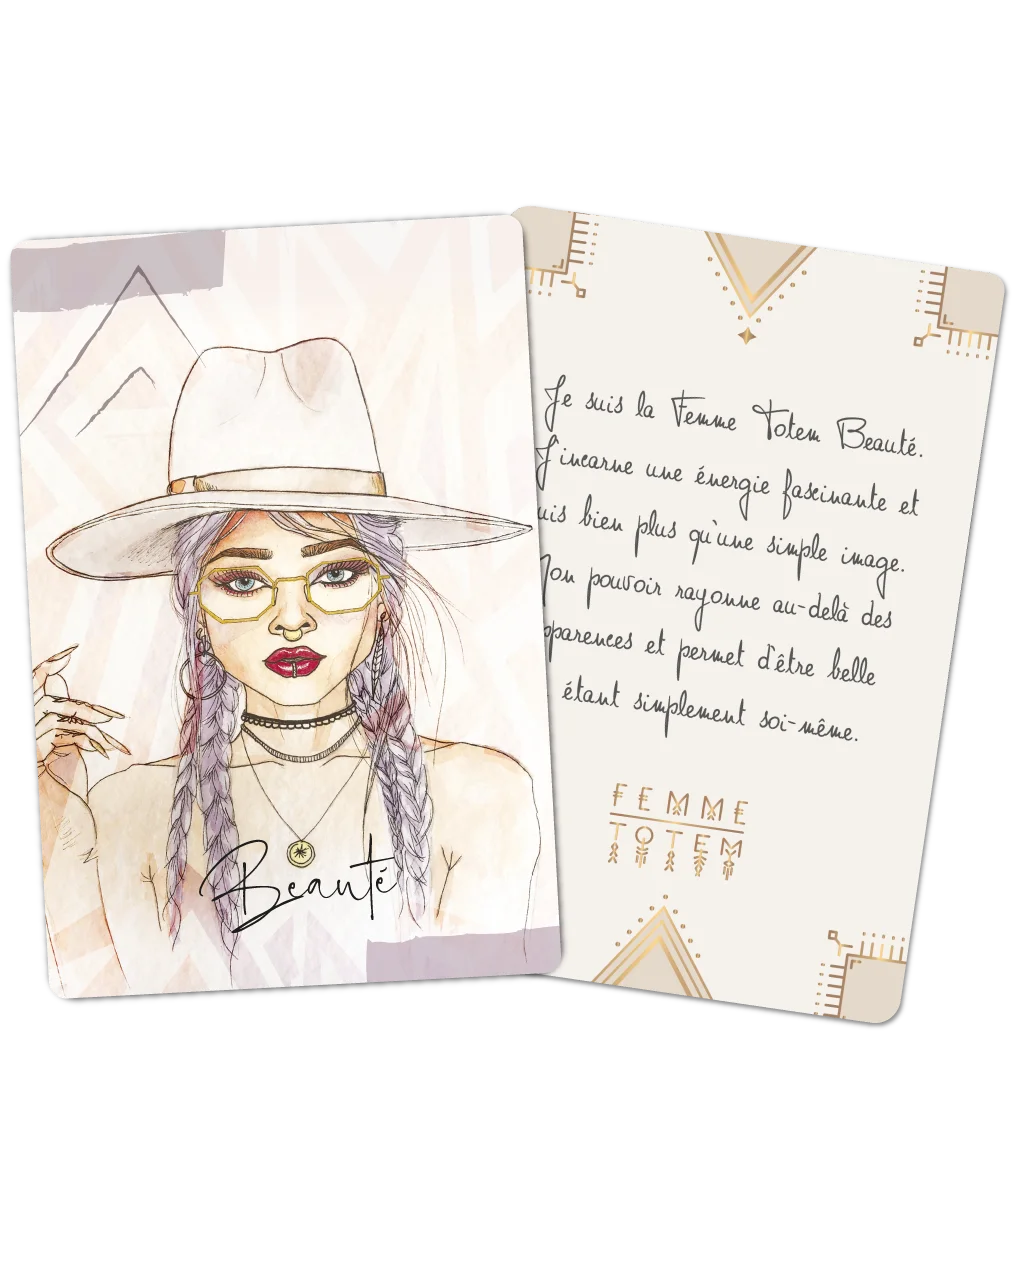 Beauté
Je suis la Femme Totem Beauté.
J'incarne une énergie fascinante et
bien plus qu'une simple image.
pouvoir rayonne au-delà des
et permet d'être belle
étant simplement soi-même.
FEMME
TOTEM